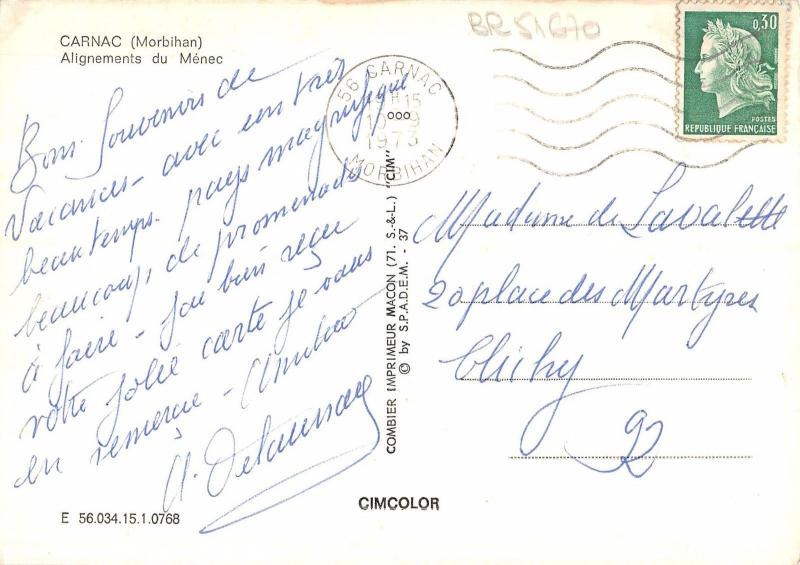 BR51670
CARNAC (Morbihan)
Alignements du Ménec
Bons Souvenirs de
Vacances - avec un très
beau temps. pays magnifique
beaucoup de promenades
à faire - J'ai bien reçu
votre jolie carte je vous
en remercie - Amitiés
A.
E 56.034.15.1.0768
56 CARNAC
H 15
10 9
1973
MORBIHAN
COMBIER IMPRIMEUR MACON (71, S.-&-L.) "CIM"
© by S.P.A.D.E.M. 37
CIMCOLOR
0,30
POSTES
REPUBLIQUE FRANÇAISE
Madame de Lavalette
20 place des Martyres
Clichy
92